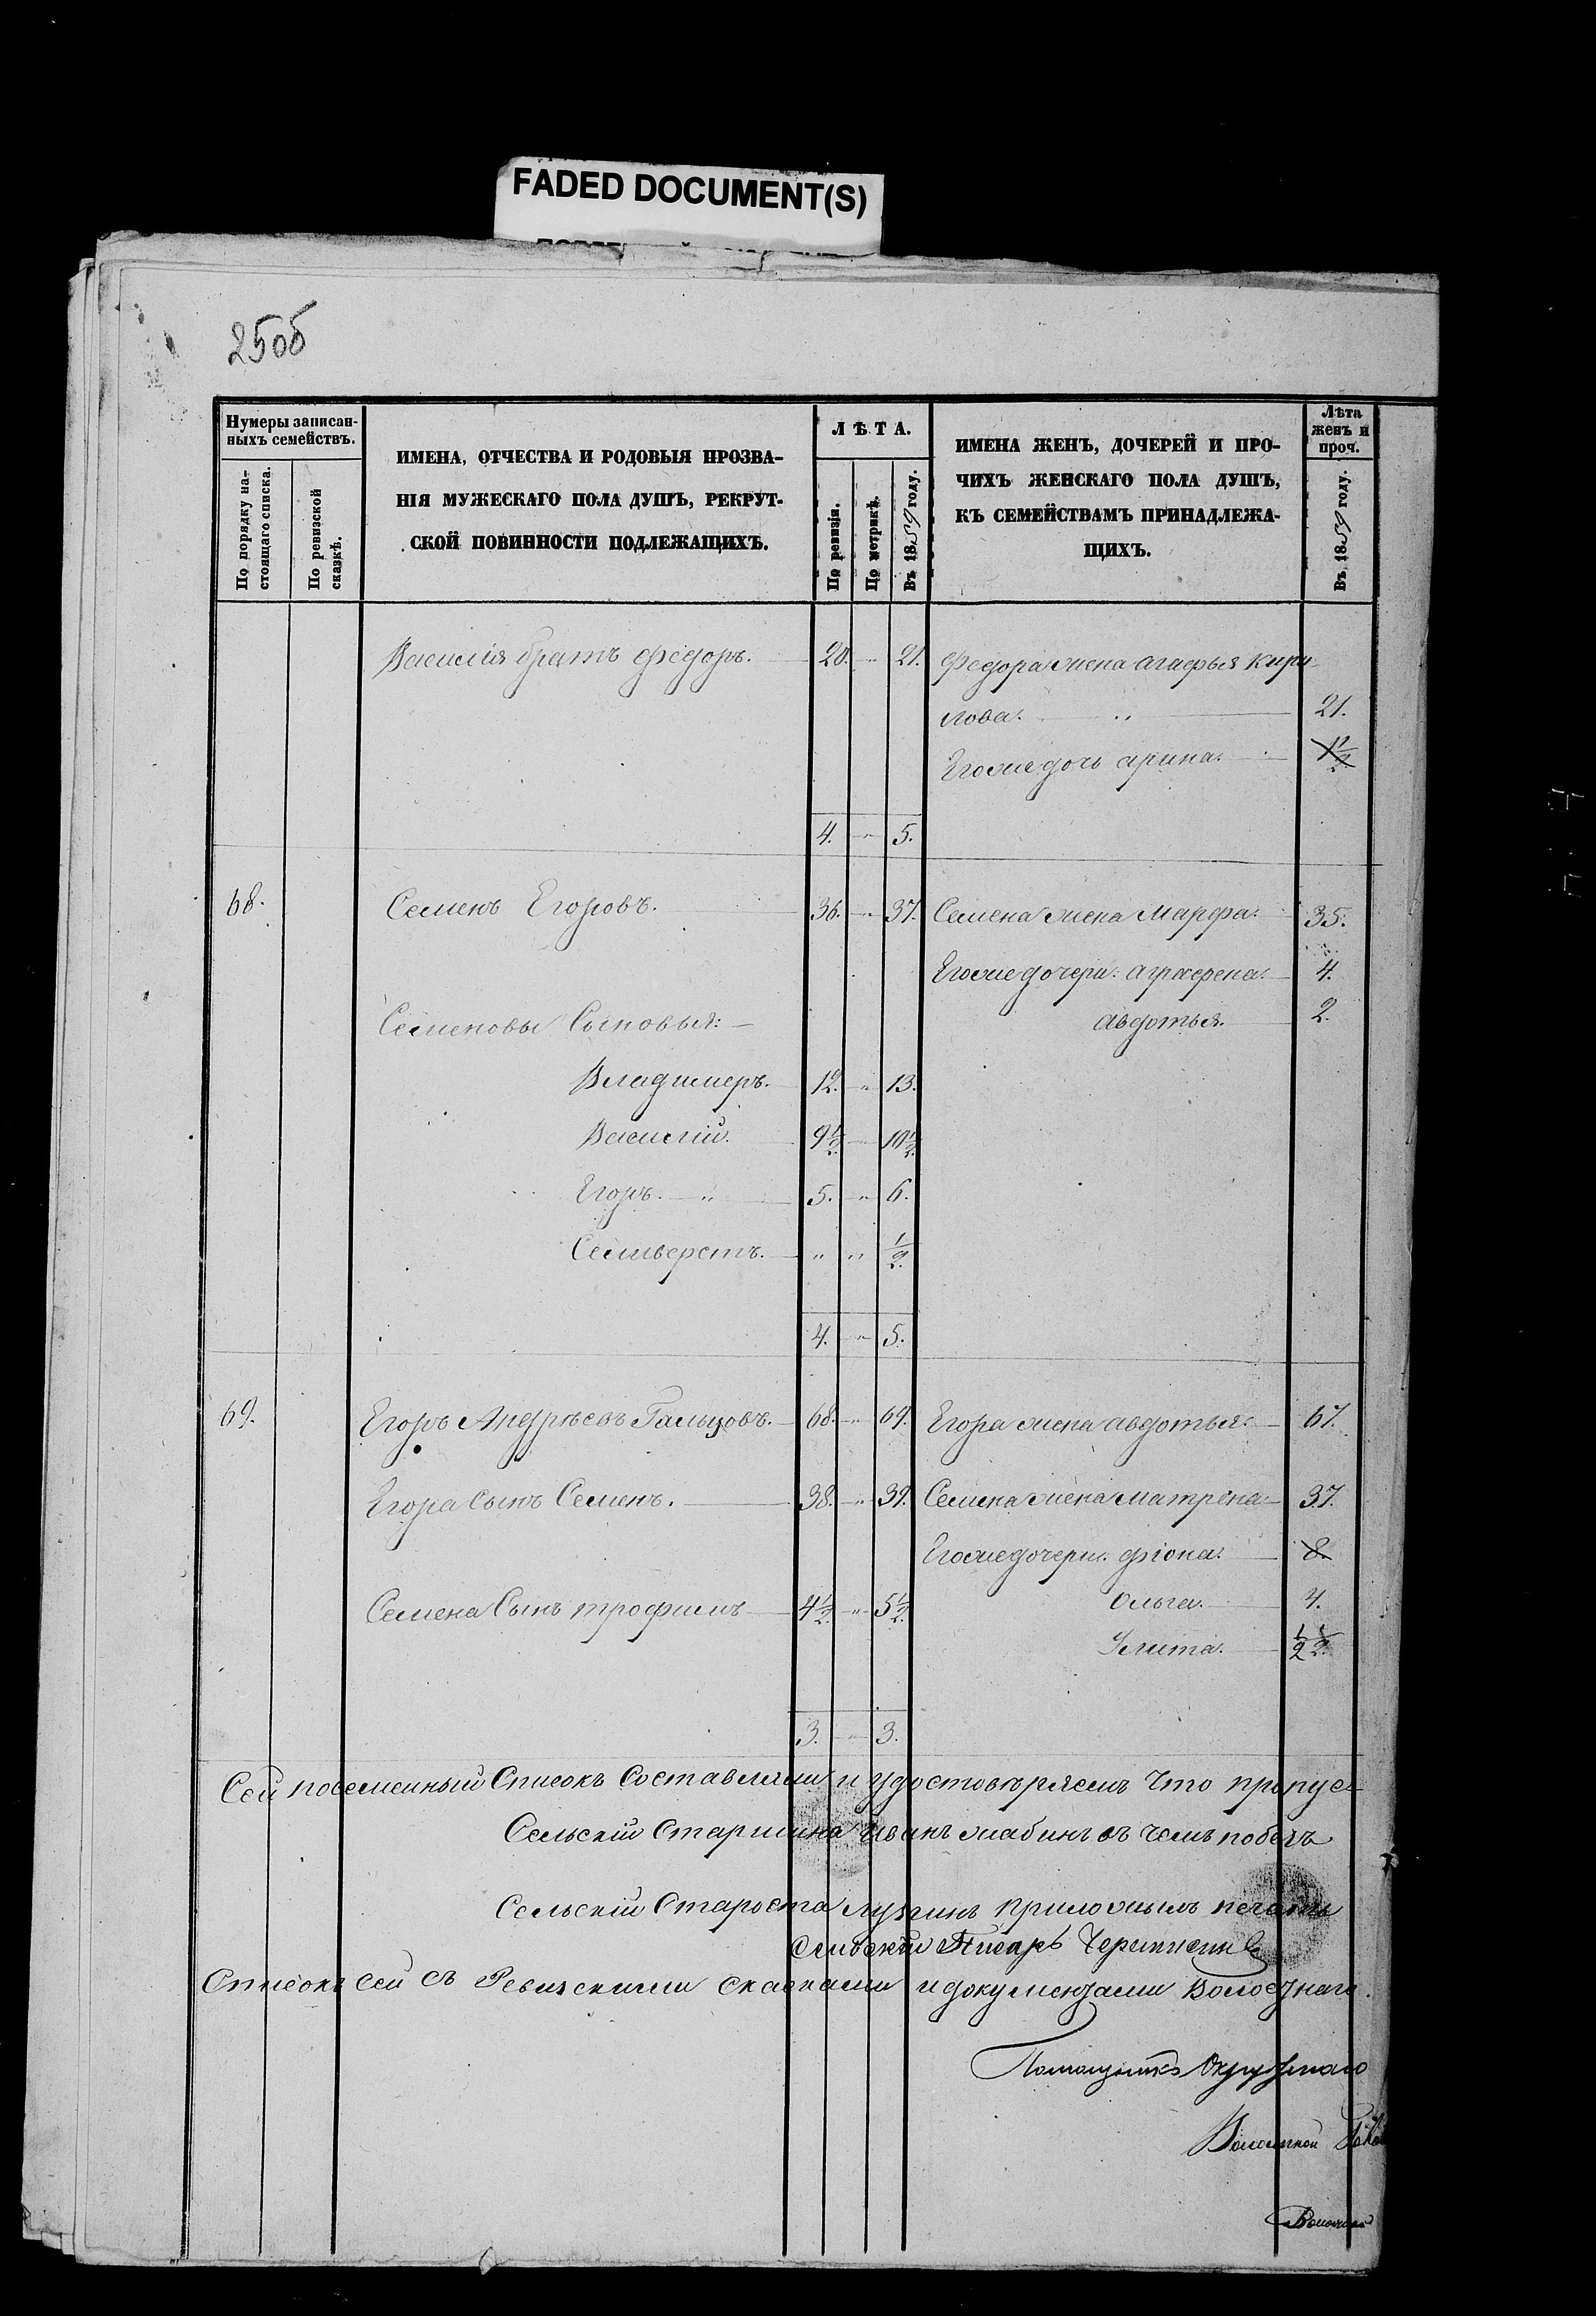 FADED DOCUMENT(S)
25об
Нумеры записан-
ныхъ семействъ.
По порядку на-
стоящаго списка.
По ревизской
сказкѣ.
ИМЕНА, ОТЧЕСТВА И РОДОВЫЯ ПРОЗВА-
НІЯ МУЖЕСКАГО ПОЛА ДУШЪ, РЕКРУТ-
СКОЙ ПОВИННОСТИ ПОДЛЕЖАЩИХЪ.
ЛѢТА.
По ревизіи.
По метрикѣ.
Въ 1859 году.
ИМЕНА ЖЕНЪ, ДОЧЕРЕЙ И ПРО-
ЧИХЪ ЖЕНСКАГО ПОЛА ДУШЪ,
КЪ СЕМЕЙСТВАМЪ ПРИНАДЛЕЖА-
ЩИХЪ.
Лѣта
женъ и
проч.
Въ 1859 году.
Василія братъ федоръ. 20. " 21. Федора жена агафья кири
лова. " 21.
Егоже дочь арина. 1 1/2
4. " 5.
68. Семенъ Егоровъ. 36. " 37. Семена жена Марфа. 35.
Егоже дочери: аграфена. 4.
Семеновы Сыновья: авдотья. 2.
Владимеръ. 12. " 13.
Василій. 9 1/2 " 10 1/2
Егоръ. " 5. " 6.
Селиверстъ. " " 1/2
4. " 5.
69. Егоръ Андрѣевъ Гальцовъ. 68. " 69. Егора жена авдотья. 67.
Егора Сынъ Семенъ. 38. " 39. Семена жена Матрена 37.
Егоже дочери: фіона. 8.
Семена Сынъ трофимъ 4 1/2 " 5 1/2 Ольга. 4.
Улита. 1/2 1/2
3. " 3.
Сей посемейный Списокъ Составляли и удостовѣряемъ что пропус
Сельскій Старшина Иванъ жабинъ въ чемъ
Сельскій Староста приложилъ печать
Сельскій Писарь
Списокъ сей съ Ревизскими сказками и документами Волостнаго
Помощникъ Окружнаго
Волостной